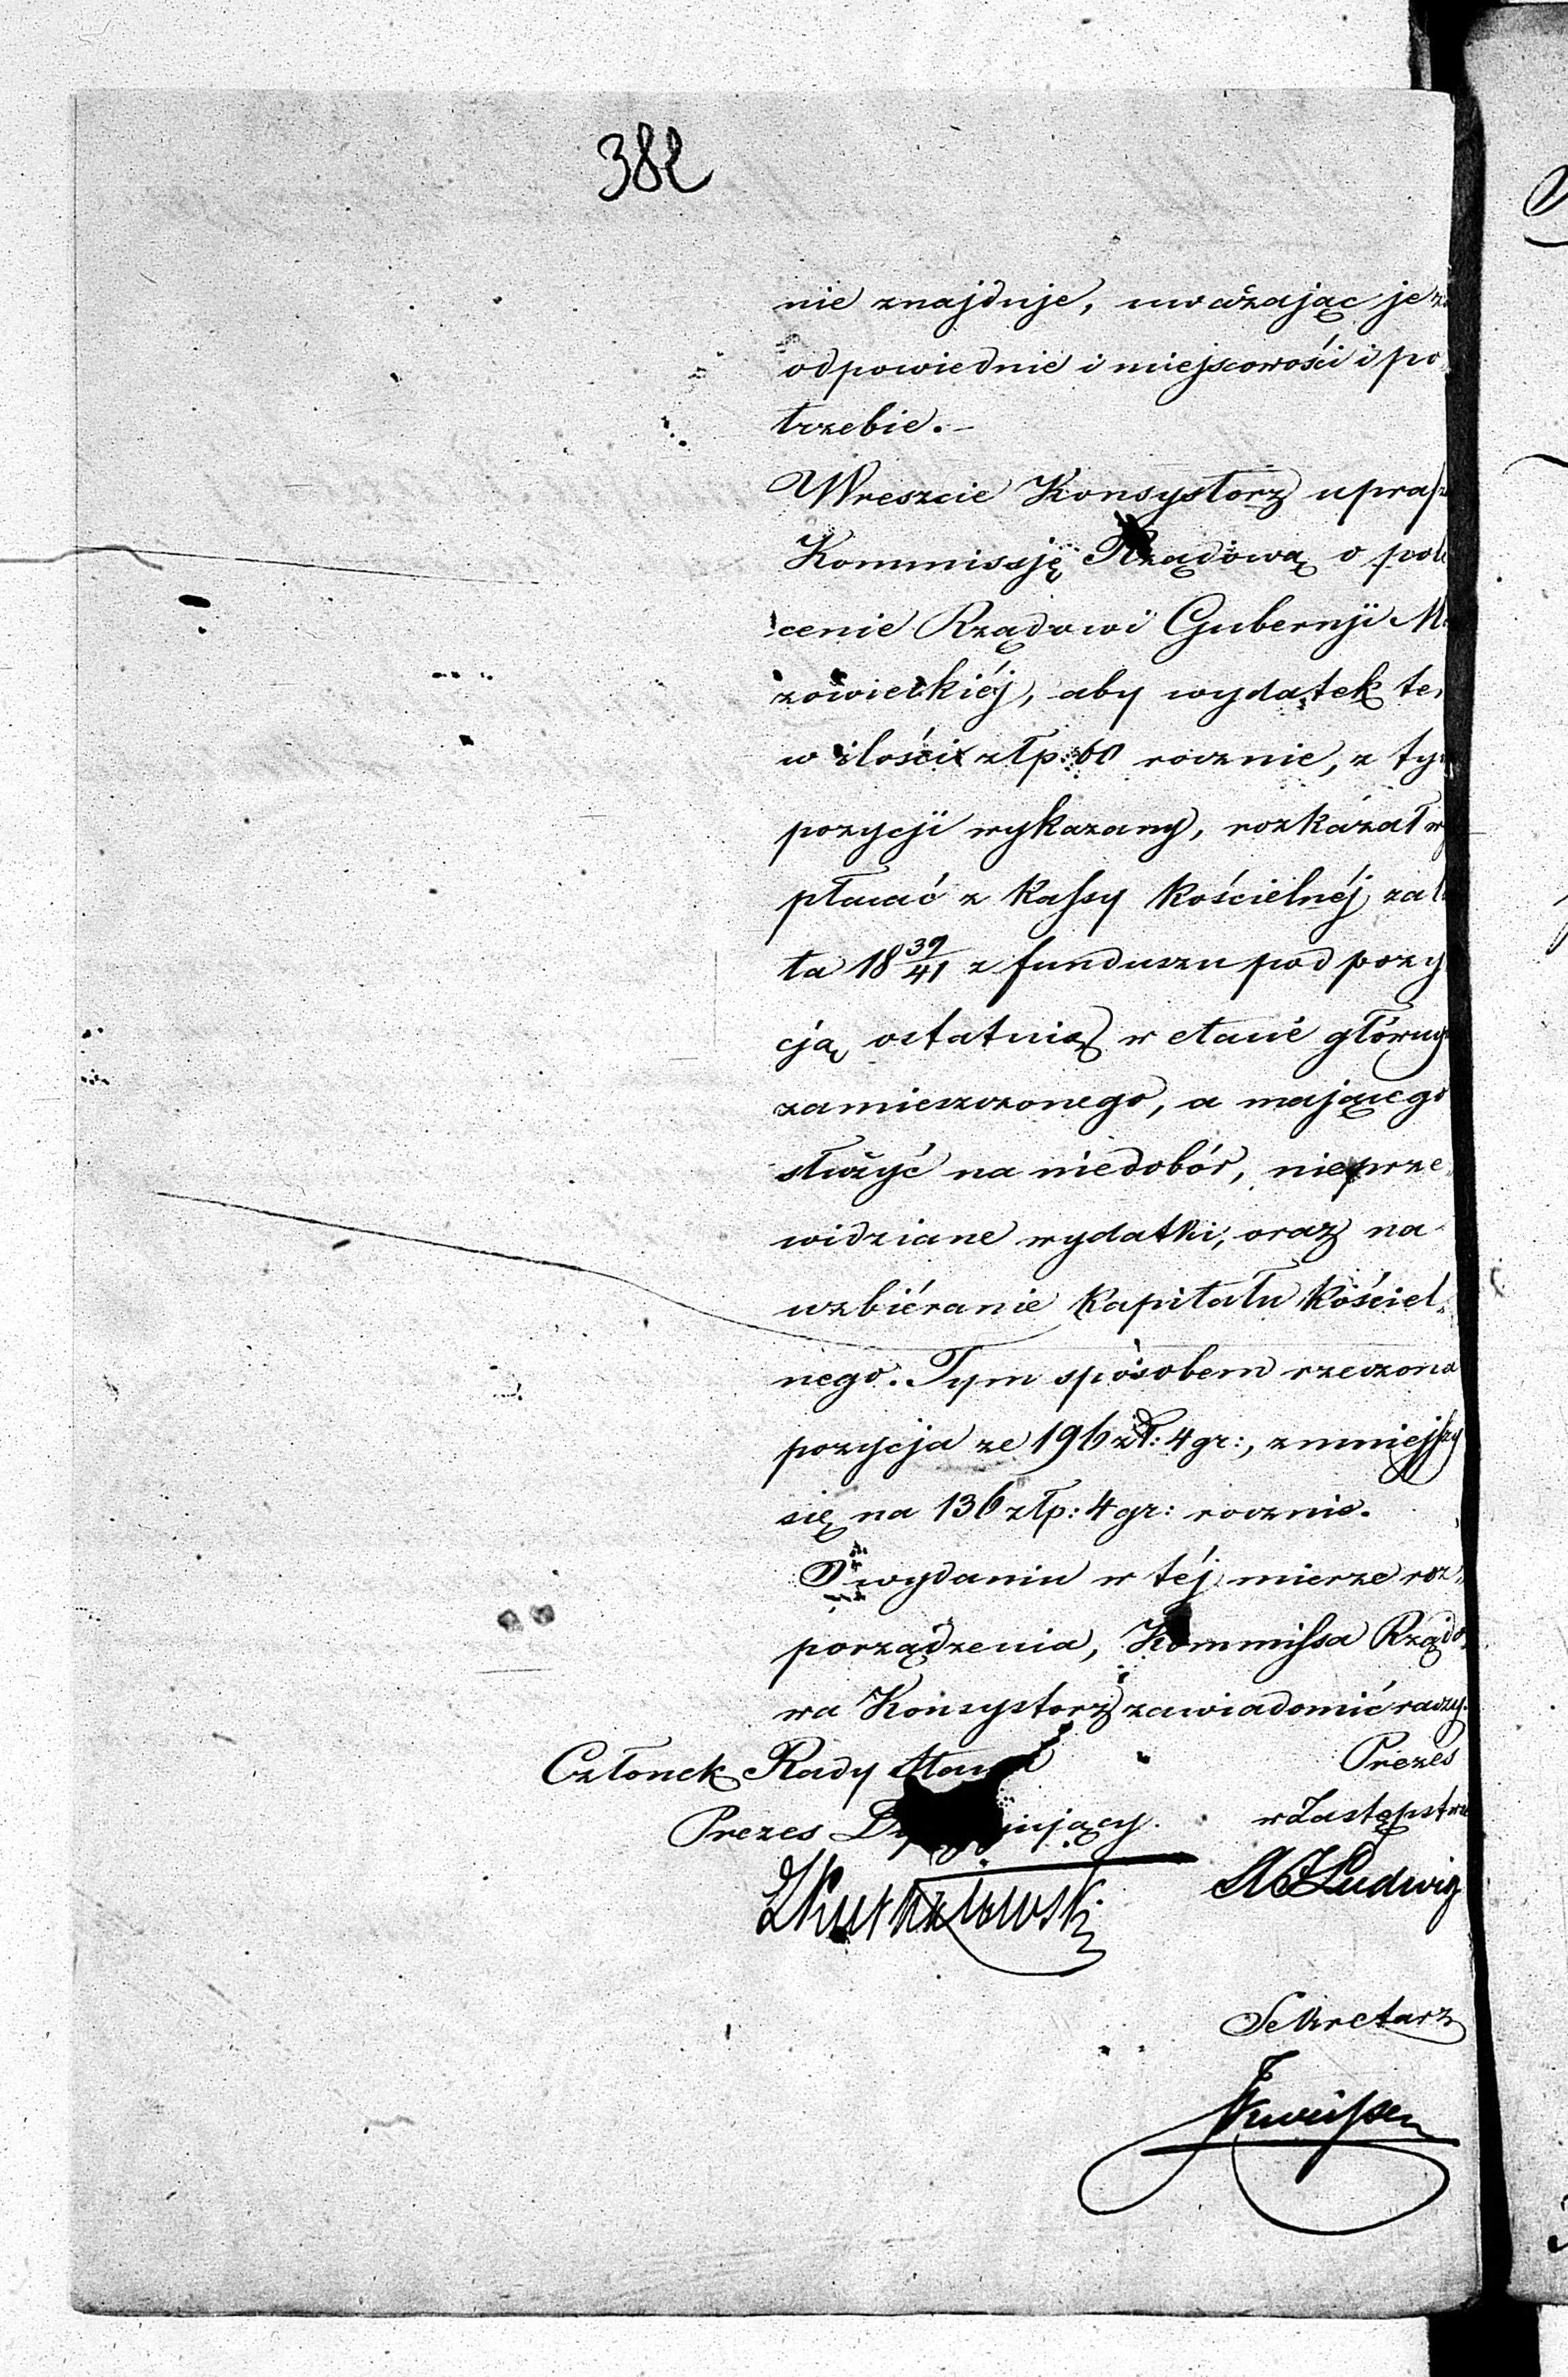 382
nie znajduje, uważając je z
odpowiednie i miejscowości i po„
trzebie.–
Wreszcie Konsystorz uprasz
Kommissję Rządową o pole
cenie Rządowi Gubernji M
zowieckiéj, aby wydatek ten
w ilości złp: 60 rocznie, z tym
pozycji wykazany, rozkazał wy
płacać z Kassy Kościelnéj za l
ta 18 39/41 z funduszu pod pozy
cją ostatnią w etacie główny
zamieszczonego, a mającego
służyć na niedobór, nieprze„
widziane wydatki, oraz na
uzbiéranie Kapitału Kościel„
nego. Tym sposobem rzeczona
pozycja ze 196 zł: 4 gr:, zmniejszy
się na 136 złp: 4 gr: rocznie.
O wydaniu w téj mierze roz„
porządzenia, Kommissa Rządo„
wa Konsystorz zawiadomić raczy.
Członek Rady Stanu Prezes
Prezes w Zastępstwie
Ludwig
Sekretarz